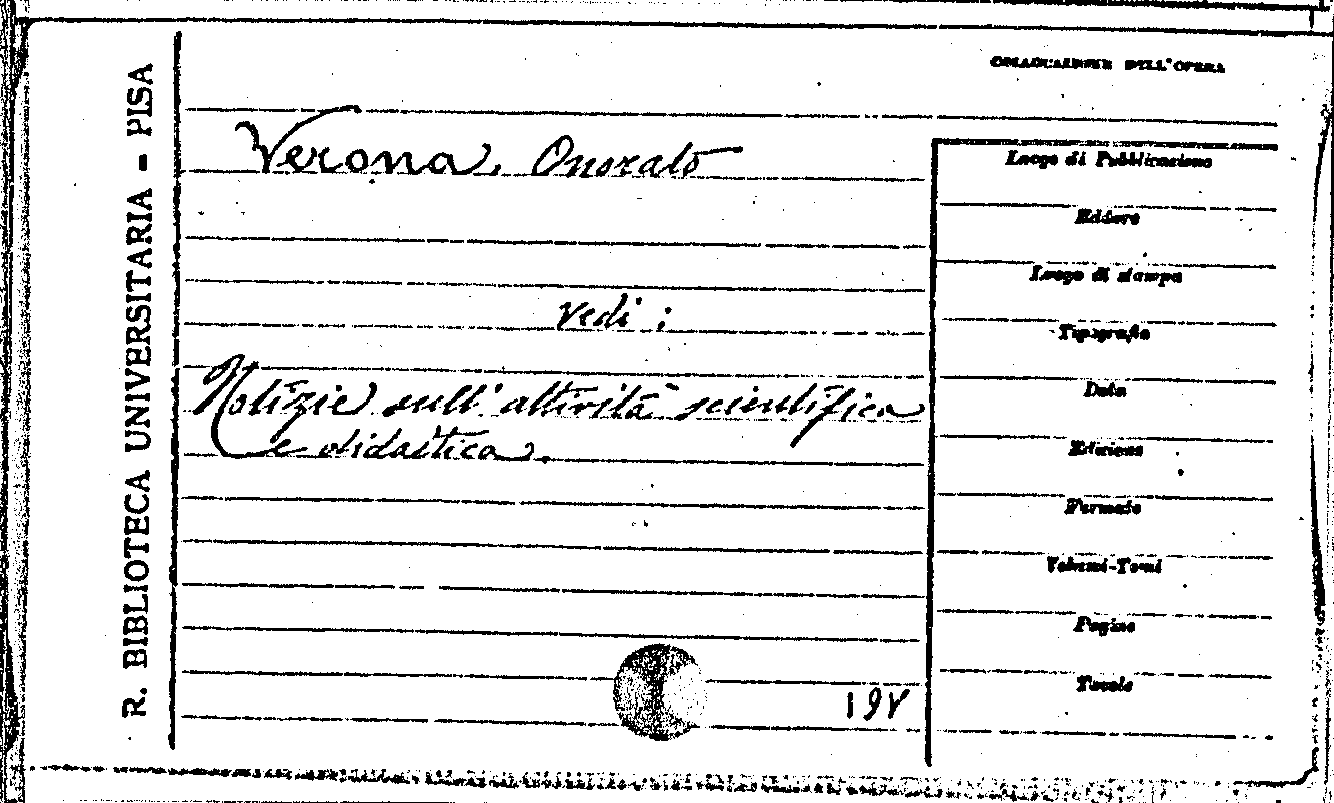 R. BIBLIOTECA UNIVERSITARIA - PISA
COLLOCAZIONE DELL'OPERA
Verona, Onorato
vedi :
Notizie sull'attività scientifica
e didattica.
Luogo di Pubblicazione
Editore
Luogo di stampa
Tipografia
Data
Edizione
Formato
Volumi-Tomi
Pagine
Tavole